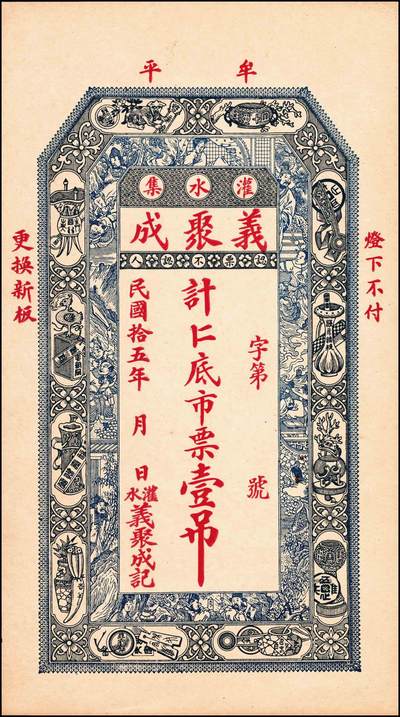 牟平
灌水集
義聚成
認票不認人
燈下不付
字第　號
計仁底市票壹吊
民國拾五年　月　日
灌水義聚成記
更換新板